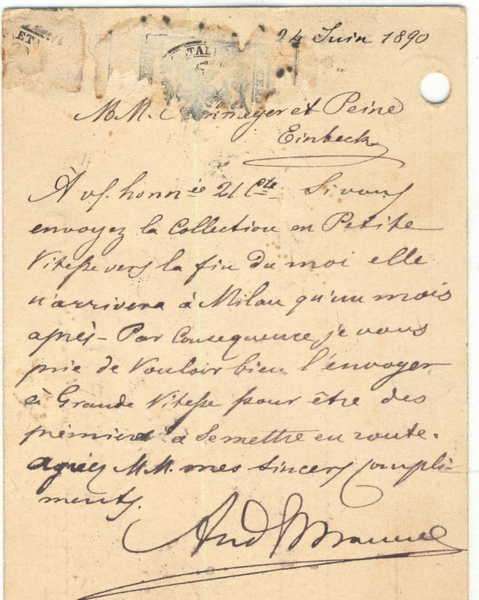 24 Juin 1890
M.M. et Peine
Einbeck
A vs. honnée 21 Cte Si vous
envoyez la Collection en Petite
Vitesse vers la fin du moi elle
n'arrivera à Milan qu'un mois
après - Par Consequence je vous
prie de Vouloir bien l'envoyer
à Grande Vitesse pour être des
prémiers à Semettre en route.
agréez M.M. mes sincers compli-
ments.